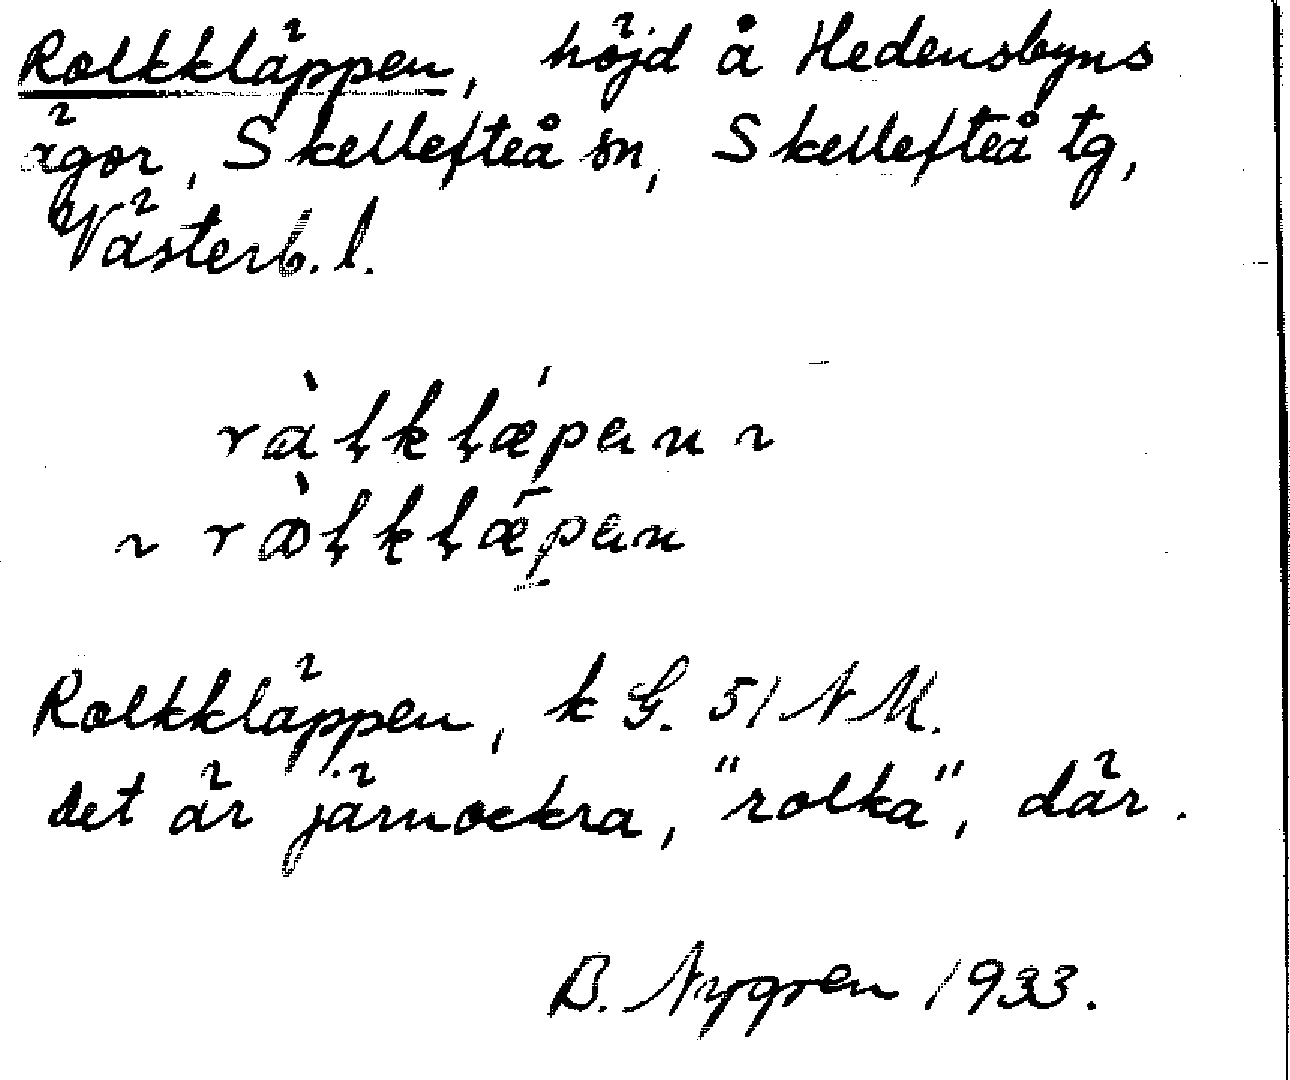 Rolkkläppen, höjd å Hedensbyns
ägor, Skellefteå sn, Skellefteå tg,
Västerb. l.
Rolkkläppen, k G. 51 N M.
det är järnockra, "rolka", där.
B. Nygren 1933.